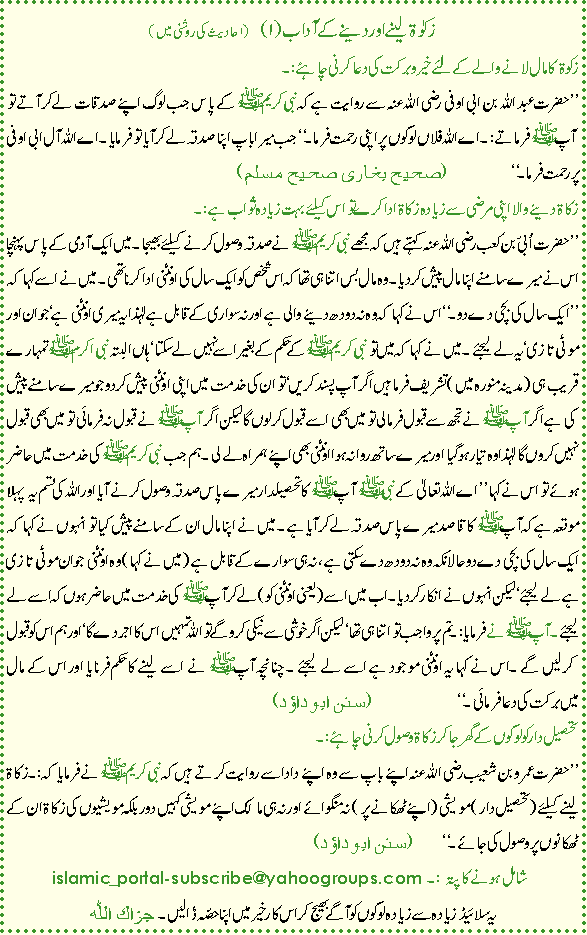 زکوٰۃ لینے اور دینے کے آداب (۱) (احادیث کی روشنی میں)
زکوٰۃ کا مال لانے والے کے لئے خیر و برکت کی دعا کرنی چاہئے:۔
’’حضرت عبداللہ بن ابی اوفی رضی اللہ عنہ سے روایت ہے کہ نبی کریم ﷺ کے پاس جب لوگ اپنے صدقات لے کر آتے تو
آپ ﷺ فرماتے:۔ اے اللہ فلاں لوگوں پر اپنی رحمت فرما۔‘‘ جب میرا باپ اپنا صدقہ لے کر آیا تو فرمایا۔ اے اللہ آل ابی اوفی
پر رحمت فرما۔‘‘ (صحیح بخاری صحیح مسلم)
زکاۃ دینے والا اپنی مرضی سے زیادہ زکاۃ ادا کرے تو اس کیلئے بہت زیادہ ثواب ہے:۔
’’حضرت اُبیّ بن کعب رضی اللہ عنہ کہتے ہیں کہ مجھے نبی کریم ﷺ نے صدقہ وصول کرنے کیلئے بھیجا۔ میں ایک آدمی کے پاس پہنچا
اس نے میرے سامنے اپنا مال پیش کر دیا۔ وہ مال بس اتنا ہی تھا کہ اس شخص کو ایک سال کی اونٹنی ادا کرنا تھی۔ میں نے اسے کہا کہ
’’ایک سال کی بچی دے دو۔‘‘ اس نے کہا کہ وہ نہ دودھ دینے والی ہے اور نہ سواری کے قابل ہے لہٰذا یہ میری اونٹنی ہے‘ جوان اور
موٹی تازی‘ یہ لے لیجئے ۔ میں نے کہا کہ میں تو نبی کریم ﷺ کے حکم کے بغیر اسے نہیں لے سکتا‘ ہاں البتہ نبی اکرم ﷺ تمہارے
قریب ہی (مدینہ منورہ میں) تشریف فرما ہیں اگر آپ پسند کریں‘ تو ان کی خدمت میں اپنی اونٹنی پیش کر دو جو میرے سامنے پیش
کی ہے اگر آپ ﷺ نے تجھ سے قبول فرمالی تو میں بھی اسے قبول کرلوں گا لیکن اگر آپ ﷺ نے قبول نہ فرمائی تو میں بھی قبول
نہیں کروں گا لہٰذا وہ تیار ہوگیا اور میرے ساتھ روانہ ہوا اونٹنی بھی اپنے ہمراہ لے لی ۔ ہم جب نبی کریم ﷺ کی خدمت میں حاضر
ہوئے تو اس نے کہا ’’اے اللہ تعالیٰ کے نبی ﷺ آپ ﷺ کا تحصیلدار میرے پاس صدقہ وصول کرنے آیا اور اللہ کی قسم یہ پہلا
موقعہ ہے کہ آپ ﷺ کا قاصد میرے پاس صدقہ لے کر آیا ہے۔ میں نے اپنا مال ان کے سامنے پیش کیا تو انہوں نے کہا کہ
ایک سال کی بچی دے دو حالانکہ وہ نہ دودھ دے سکتی ہے، نہ ہی سوارے کے قابل ہے (میں نے کہا) وہ اونٹنی جوان موٹی تازی
ہے لے لیجئے‘ لیکن انہوں نے انکار کر دیا۔ اب میں اسے (یعنی اونٹنی کو) لے کر آپ ﷺ کی خدمت میں حاضر ہوں کہ اسے لے
لیجئے ۔ آپ ﷺ نے فرمایا: تم پر واجب تو اتنا ہی تھا‘ لیکن اگر خوشی سے نیکی کرو گے تو اللہ تمہیں اس کا اجر دے گا‘ اور ہم اس کو قبول
کرلیں گے ۔ اس نے کہا یہ اونٹنی موجود ہے اسے لے لیجئے ۔ چنانچہ آپ ﷺ نے اسے لینے کا حکم فرمایا اور اس کے مال
میں برکت کی دعا فرمائی ۔‘‘ (سنن ابو داؤد)
تحصیل دار کو لوگوں کے گھر جا کر زکاۃ وصول کرنی چاہئے:۔
’’حضرت عمرو بن شعیب رضی اللہ عنہ اپنے باپ سے وہ اپنے دادا سے روایت کرتے ہیں کہ نبی کریم ﷺ نے فرمایا کہ:۔ زکاۃ
لینے کیلئے (تحصیل دار) مویشی (اپنے ٹھکانے پر) نہ منگوائے اور نہ ہی مالک اپنے مویشی کہیں دور بلکہ مویشیوں کی زکاۃ ان کے
ٹھکانوں پر وصول کی جائے ۔‘‘ (سنن ابو داؤد)
شامل ہونے کا پتہ :۔ islamic_portal-subscribe@yahoogroups.com
یہ سلائیڈ زیادہ سے زیادہ لوگوں کو آگے بھیج کر اس کار خیر میں اپنا حصّہ ڈالیں ۔ جزاک اللہ